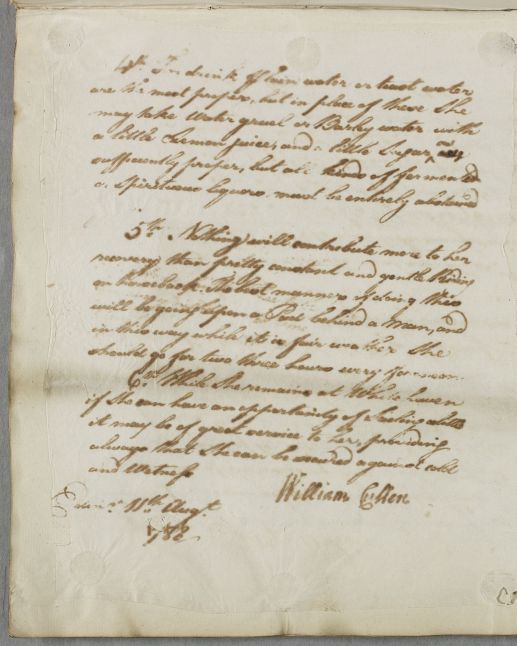 4th In drink plain water or toast water
are the most proper, but in place of these She
may take Water gruel or Barley water with
a little Lemon juice, and a little Sugar, are
sufficiently proper, but all kinds of fermented
or Spirituous liquors must be entirely abstained
5th Nothing will contribute more to her
recovery than pretty constant and gentle Riding
on horseback. The best manner of doing this
will be going upon a Pad behind a Man, and
in this way while it is fair weather She
should go for two three hours every forenoon.
6th While She remains at White haven
if She can have an opportunity of Sailing a little
it may be of great service to her, providing
always that She can be secured against cold
and Wetness
William Cullen
Edinr. 11th Augt.